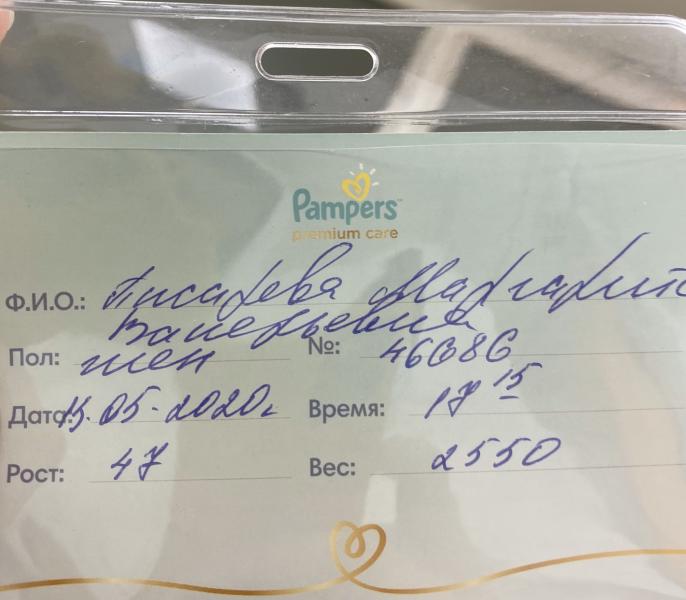 Pampers
premium care
Ф.И.О.: Писарева Маргарит
Валерьевна
Пол: жен №: 46686
Дата: 15.05.2020г. Время: 17 15
Рост: 47 Вес: 2550